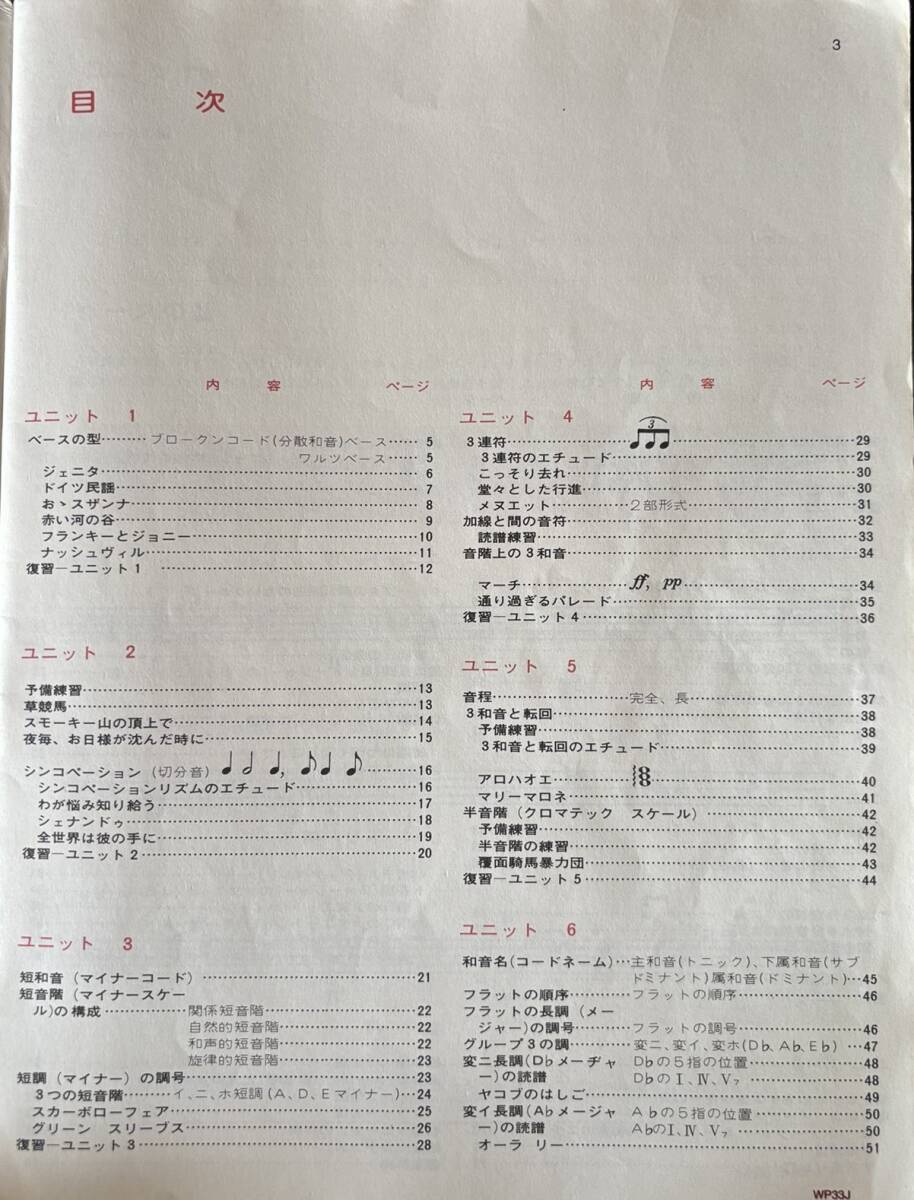 3
目次
内容 ページ
ユニット 1
ベースの型………ブロークンコード(分散和音)ベース…… 5
ワルツベース…… 5
ジェニタ…… 6
ドイツ民謡…… 7
おゝスザンナ…… 8
赤い河の谷…… 9
フランキーとジョニー…… 10
ナッシュヴィル…… 11
復習―ユニット1 …… 12
ユニット 2
予備練習…… 13
草競馬…… 13
スモーキー山の頂上で…… 14
夜毎、お日様が沈んだ時に…… 15
シンコペーション (切分音) ♩ 𝅗𝅥 ♩, ♪♩ ♪…… 16
シンコペーションリズムのエチュード…… 16
わが悩み知り給う…… 17
シェナンドゥ…… 18
全世界は彼の手に…… 19
復習―ユニット2…… 20
ユニット 3
短和音 (マイナーコード)…… 21
短音階 (マイナースケー
ル)の構成……関係短音階…… 22
自然的短音階…… 22
和声的短音階…… 22
旋律的短音階…… 23
短調 (マイナー) の調号…… 23
3つの短音階……イ、ニ、ホ短調(A、D、Eマイナー)…… 24
スカーボローフェア…… 25
グリーン スリーブス…… 26
復習―ユニット3…… 28
内容 ページ
ユニット 4
3連符…… 3 ♪♪♪ …… 29
3連符のエチュード…… 29
こっそり去れ…… 30
堂々とした行進…… 30
メヌエット……2部形式…… 31
加線と間の音符…… 32
読譜練習…… 33
音階上の3和音…… 34
マーチ…… ff, pp …… 34
通り過ぎるパレード…… 35
復習―ユニット4…… 36
ユニット 5
音程……完全、長…… 37
3和音と転回…… 38
予備練習…… 38
3和音と転回のエチュード…… 39
アロハオエ…… 40
マリーマロネ…… 41
半音階 (クロマテック スケール)…… 42
予備練習…… 42
半音階の練習…… 42
覆面騎馬暴力団…… 43
復習―ユニット5…… 44
ユニット 6
和音名(コードネーム)…主和音(トニック)、下属和音(サブ
ドミナント)属和音(ドミナント)…45
フラットの順序……フラットの順序…… 46
フラットの長調 (メー
ジャー)の調号……フラットの調号…… 46
グループ3の調……変ニ、変イ、変ホ(D♭、A♭、E♭)…47
変ニ長調(D♭メーヂャ D♭の5指の位置…… 48
ー)の読譜 D♭のⅠ、Ⅳ、Ⅴ₇…… 48
ヤコブのはしご…… 49
変イ長調(A♭メージャ A♭の5指の位置…… 50
ー)の読譜 A♭のⅠ、Ⅳ、Ⅴ₇…… 50
オーラ リー…… 51
WP33J